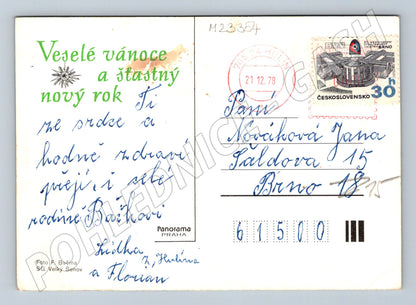 M23354
Veselé vánoce
a šťastný
nový rok
Ti
ze srdce a
hodně zdraví
přejí, i celé
rodině Bařkovi
Lidka
z Hulína
a Florian
Foto F. Boėma
SG Velký Šenov
Panorama
PRAHA
21.12.78
ČESKOSLOVENSKO
30h
Paní
Nováková Jana
Šaldova 15
Brno 18
15
61500
POHLEDNICE